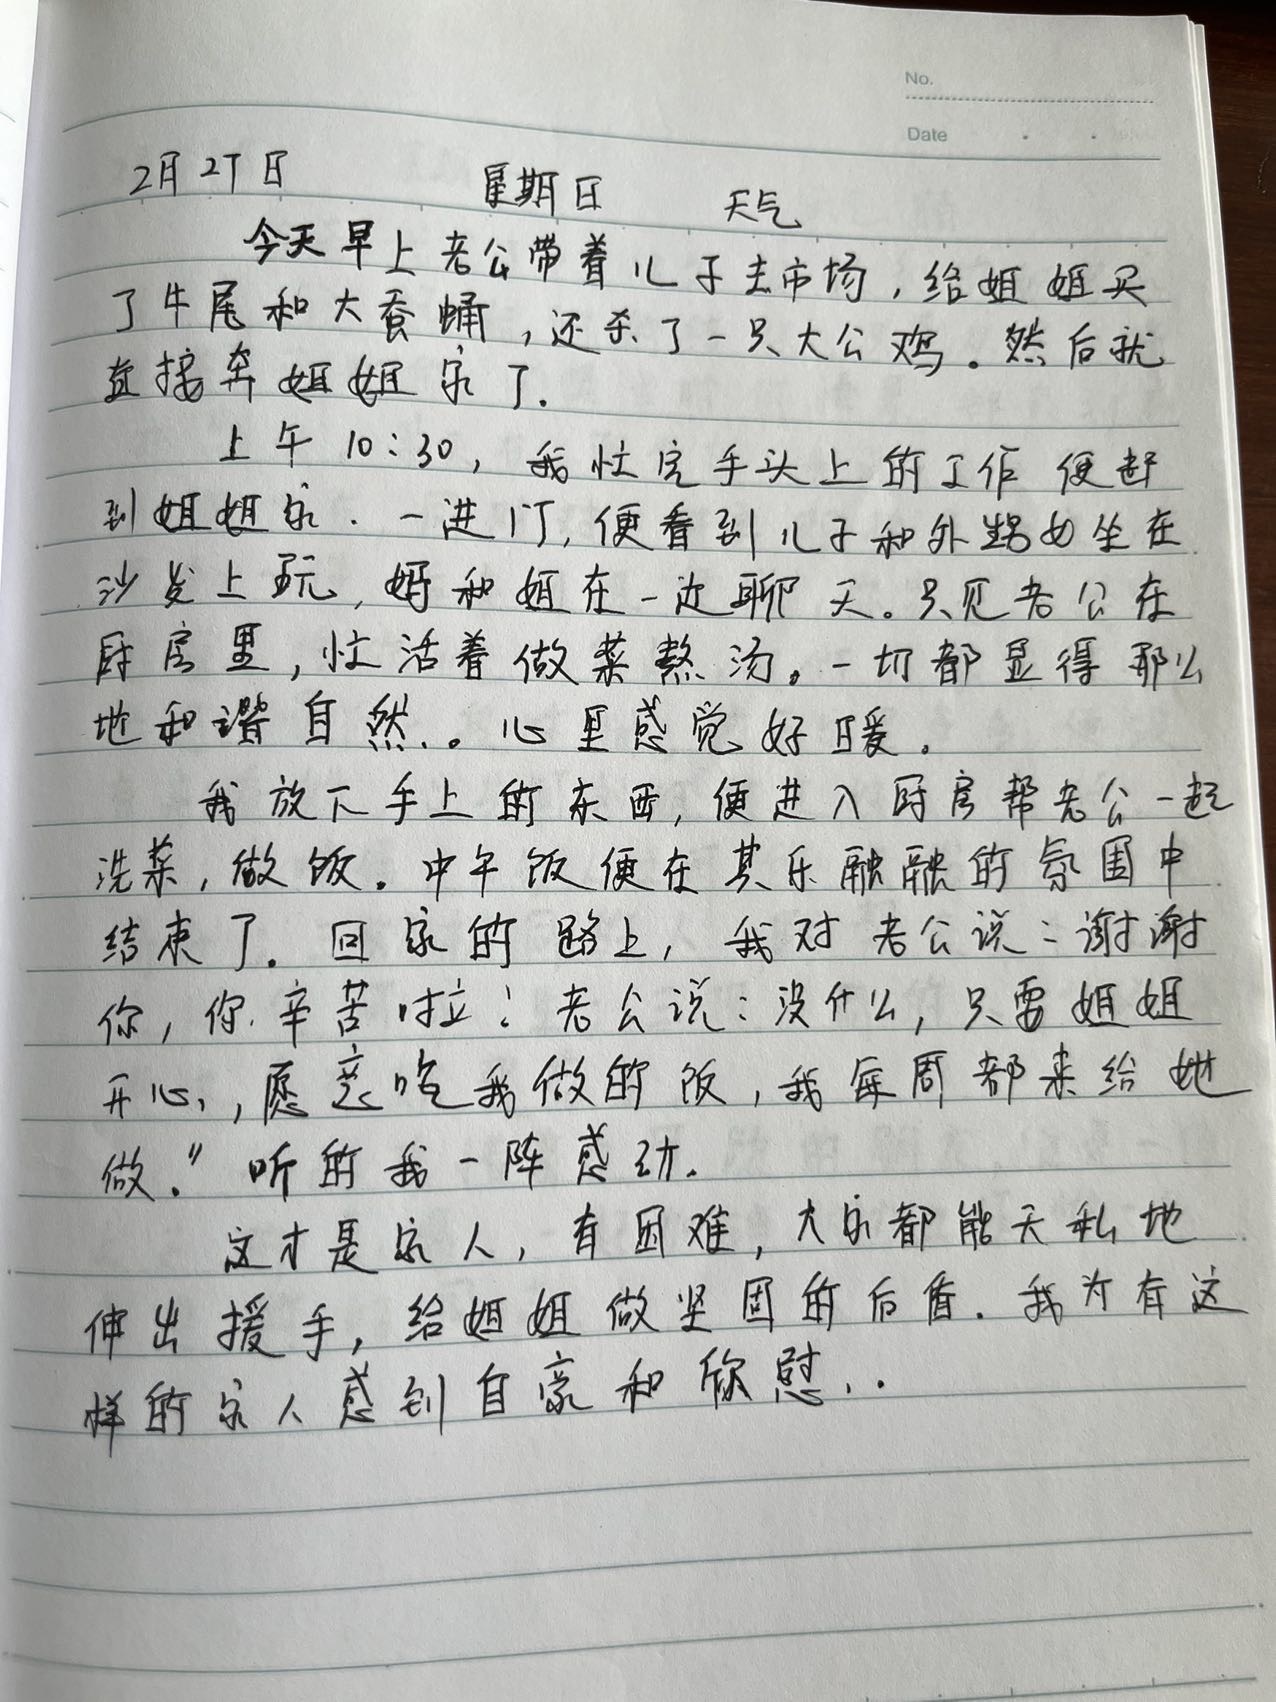 No.
Date
2月27日 星期日 天气
今天早上老公带着儿子去市场，给姐姐买
了牛尾和大蚕蛹，还杀了一只大公鸡。然后就
直接奔姐姐家了.
上午10:30，我忙完手头上的工作便赶
到姐姐家.一进门,便看到儿子和外甥女坐在
沙发上玩,妈和姐在一边聊天。只见老公在
厨房里,忙活着做菜熬汤。一切都显得那么
地和谐自然.。心里感觉好暖。
我放下手上的东西,便进入厨房帮老公一起
洗菜,做饭.中午饭便在其乐融融的氛围中
结束了.回家的路上,我对老公说:谢谢
你,你辛苦啦!老公说:没什么,只要姐姐
开心,,愿意吃我做的饭,我每周都来给她
做."听的我一阵感动.
这才是家人,有困难,大家都能无私地
伸出援手,给姐姐做坚固的后盾.我为有这
样的家人感到自豪和欣慰..